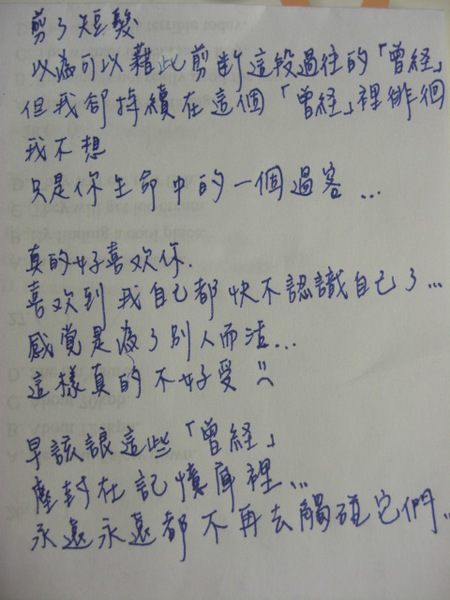 剪了短髮
以為可以藉此剪斷這段過往的「曾経」
但我卻持續在這個「曾経」裡徘徊
我不想
只是你生命中的一個過客...
真的好喜欢你.
喜欢到我自己都快不認識自己了...
感覚是為了別人而活...
這樣真的不好受
早該讓這些「曾経」
塵封在記憶庫裡...
永遠永遠都不再去觸碰它們...